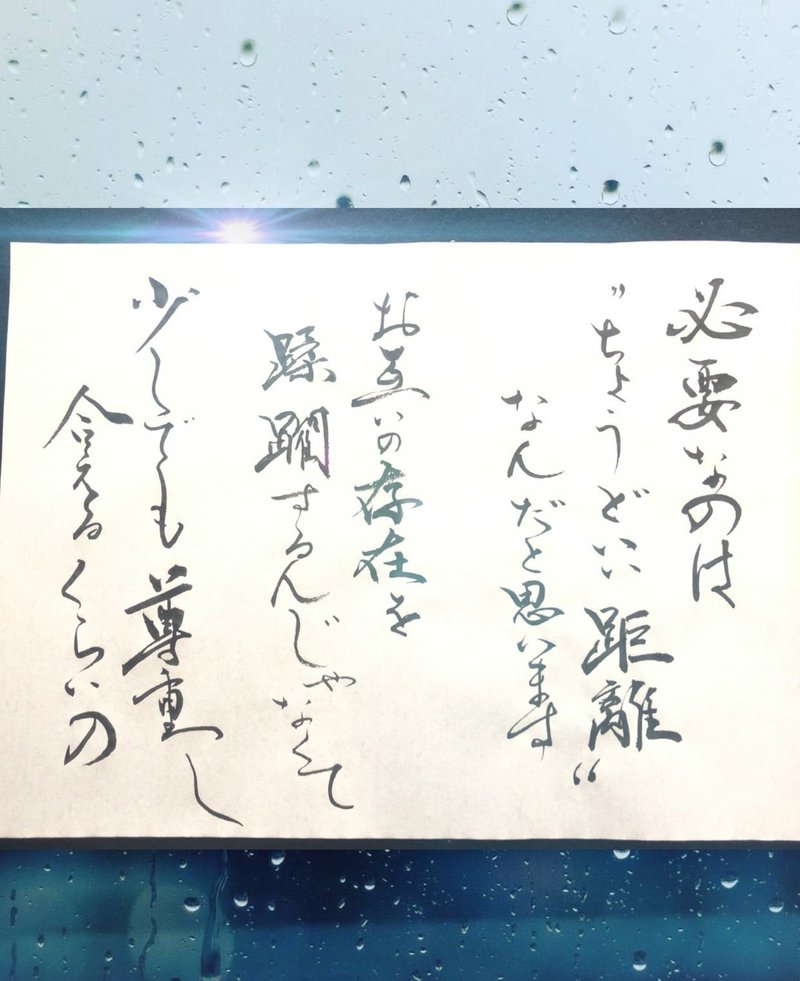 必要なのは
”ちょうどいい距離“
なんだと思います
お互いの存在を
蹂躙するんじゃなくて
少しでも尊重し
合えるくらいの